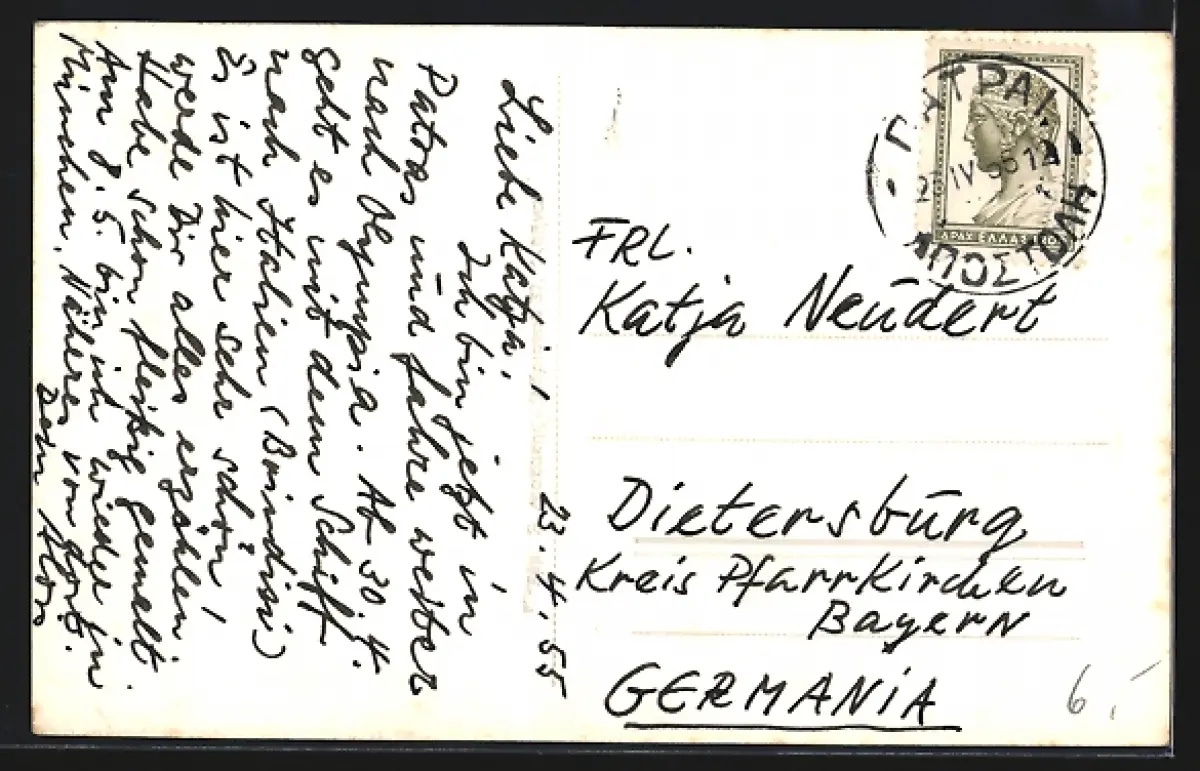 23. 4. 55
Liebe Katja!
Ich bin jetzt in
Patras und fahre weiter
nach Olympia. Ab 30.4.
geht es mit dem Schiff
nach Italien (Brindisi)
Es ist hier sehr schön!
werde Dir alles erzählen
Habe schon fleißig gemalt
Am 8.5. bin ich wieder in
München. Näheres von dort.
Dein
ΠΑΤΡΑΙ
IV 12
ΑΠΟΣΤΟΛΗ
ΔΡΑΧ ΕΛΛΑΣ
FRL.
Katja Neudert
Dietersburg
Kreis Pfarrkirchen
Bayern
GERMANIA
6.-